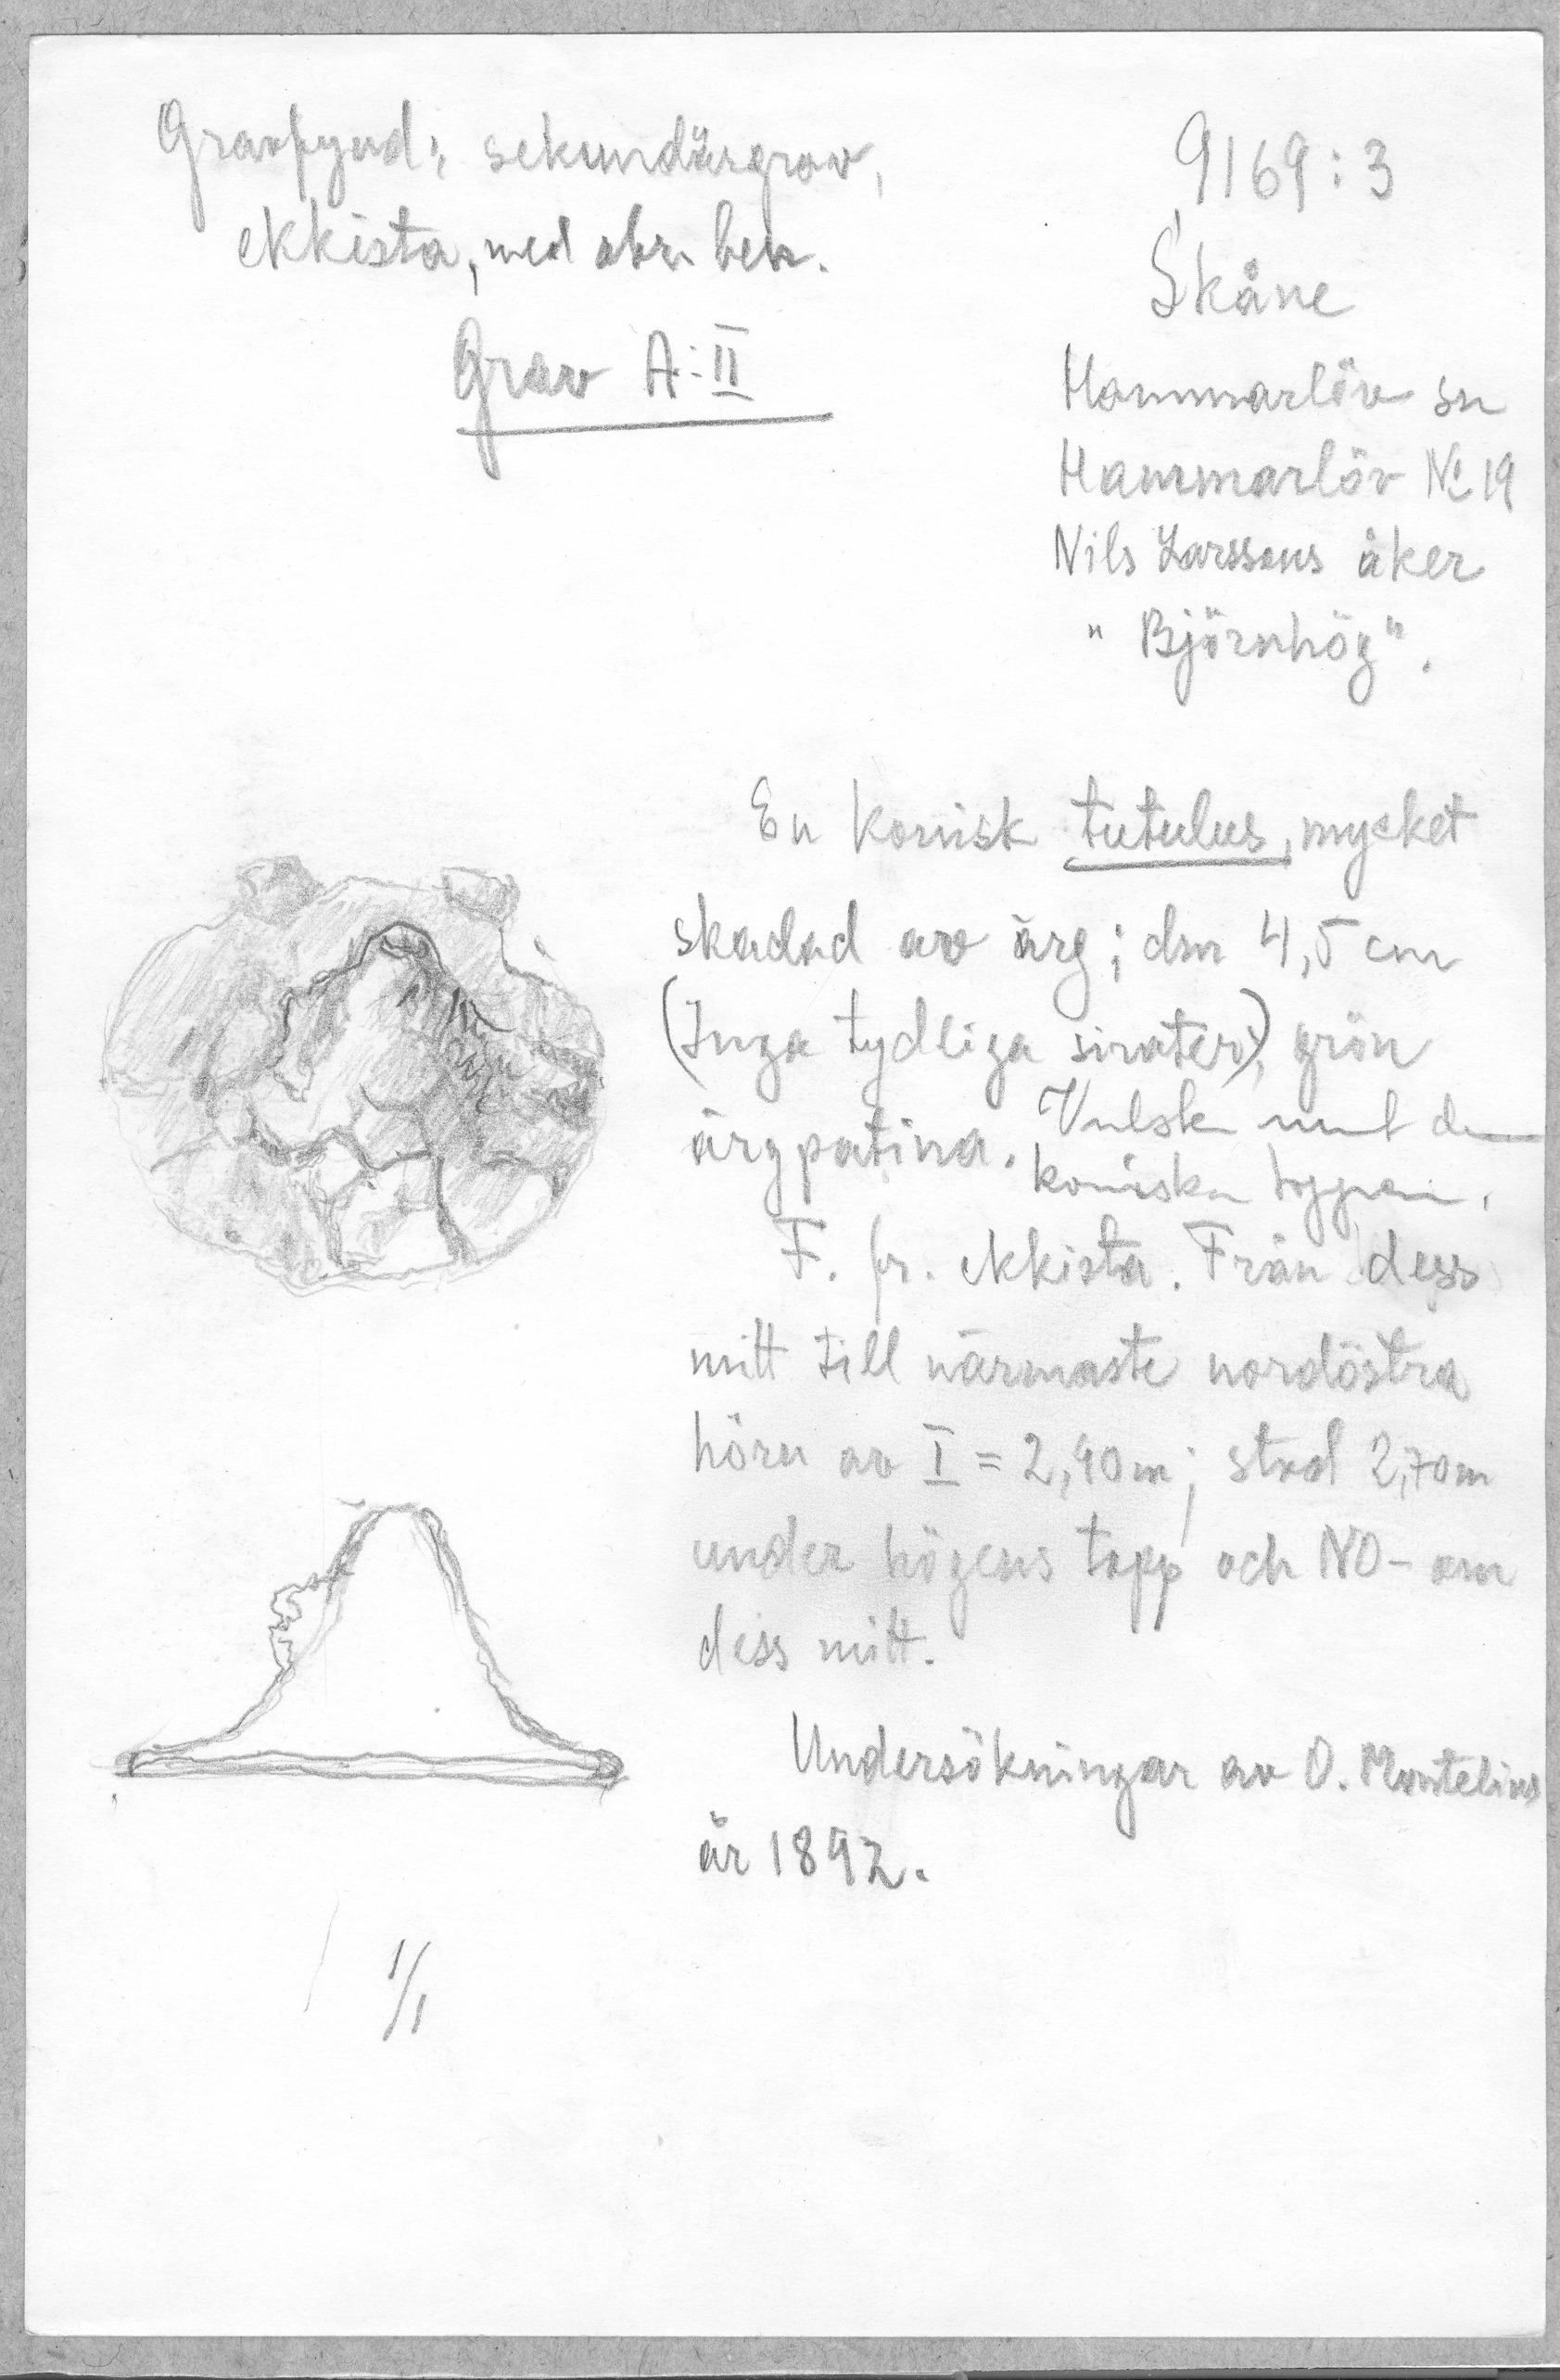 Gravfynd:, sekundärgrav,
ekkista, med obr. ben.
Grav A:II
9169:3
Skåne
Hammarlöv sn
Hammarlöv No 19
Nils Larssons åker
"Björnhög".
En konisk tutulus, mycket
skadad av ärg; dm 4,5 cm
(Inga tydliga sirater), grön
ärgpatina. Vulsk
koniska typen.
F. fr. ekkista. Från dess
mitt till närmaste nordöstra
hörn av I = 2,90m; stod 2,70m
under högens topp och NO- om
dess mitt.
Undersökningar av O. Montelius
år 1892.
1/1